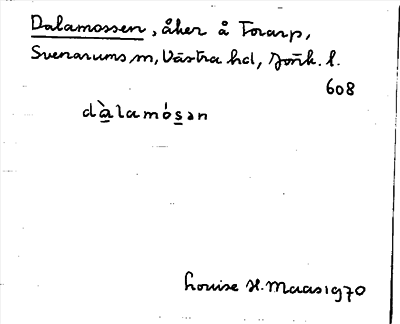 Dalamossen, åker å Forarp,
Svenarums sn, Västra hd, Jönk. l.
608
dàlamósən
Louise H. Maas 1970